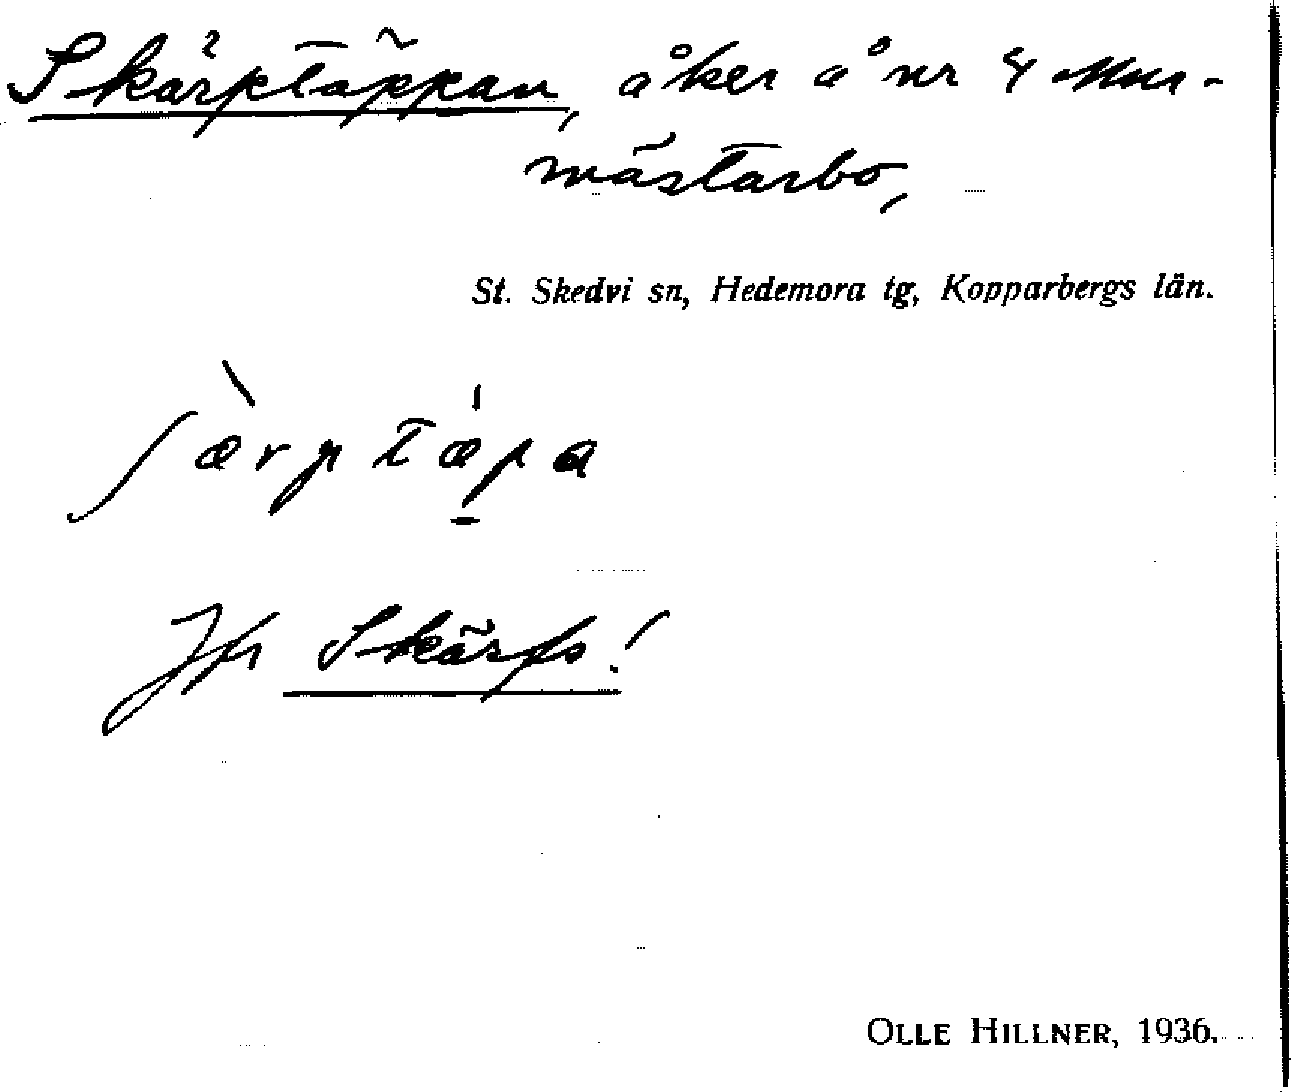 Skärptäppan, åker å nr 4 Mur-
mästarbo,
St. Skedvi sn, Hedemora tg, Kopparbergs län.
ʃæ̀rptæ̍p̠a
Jfr Skärfs!
OLLE HILLNER, 1936.